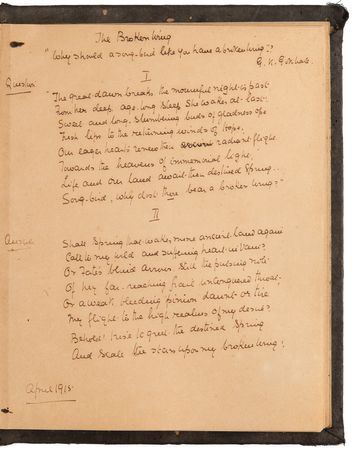 The Broken Wing
"Why should a song-bird like you have a broken wing?"
G. K. Gokhale.
I
Question
The great dawn breaks, the mournful night is past,
From her deep age-long sleep she wakes at last!
Sweet and long-slumbering buds of gladness ope
Fresh lips to the returning winds of hope,
Our eager hearts renew their radiant flight
Towards the heavens of immemorial light,
Life and our land await their destined spring...
Song-bird, why dost thou bear a broken wing?"
II
Answer
Shall Spring that wakes mine ancient land again
Call to my wild and suffering heart in vain?
Or Fate's blind arrows still the pulsing note
Of my far-reaching frail unconquered throat?
Or a weak bleeding pinion daunt or tire
My flight to the high realms of my desire?
Behold! I rise to greet the destined Spring
And scale the stars upon my broken wing!
April 1915.